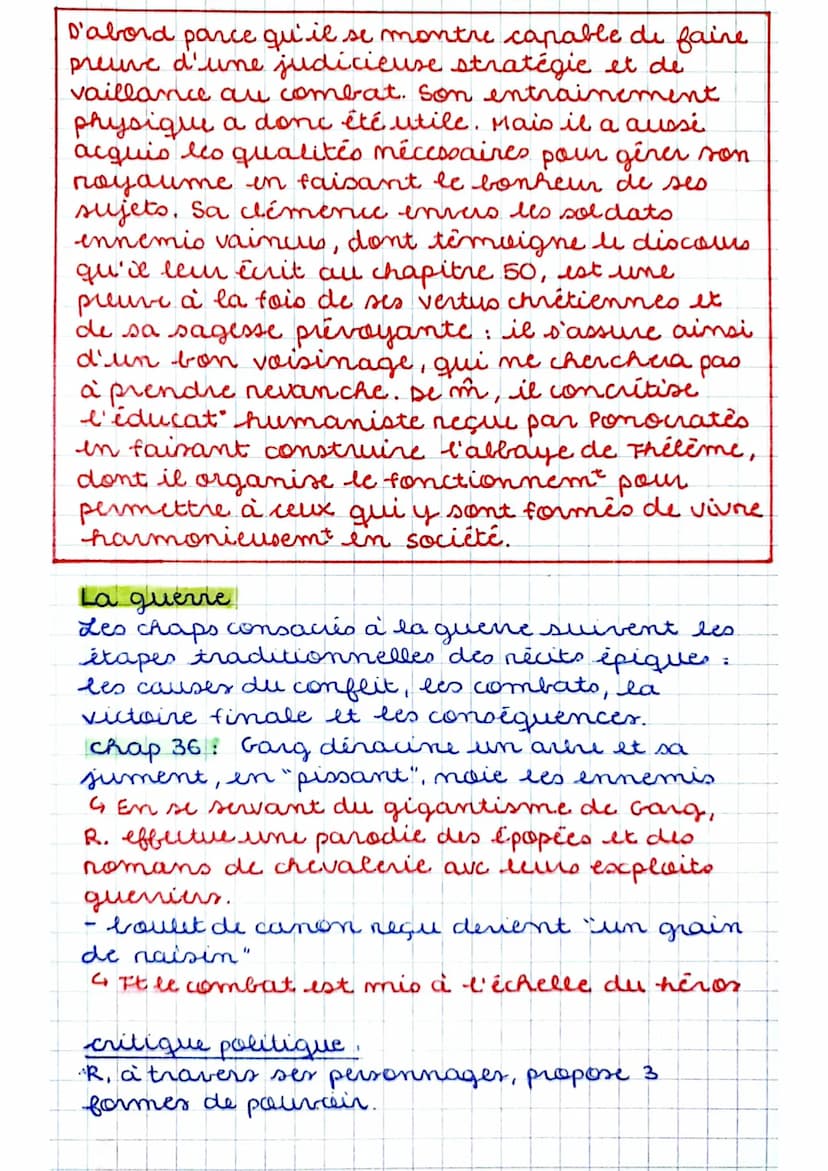 D'abord parce qu'il se montre capable de faire
preuve d'une judicieuse stratégie et de
vaillance au combat. Son entrainement
physique a donc été utile. Mais il a aussi
acquis les qualités nécessaires pour gérer son
royaume en faisant le bonheur de ses
sujets. Sa clémence envers les soldats
ennemis vaincus, dont témoigne le discours
qu'il leur écrit au chapitre 50, est une
preuve à la fois de ses vertus chrétiennes et
de sa sagesse prévoyante : il s'assure ainsi
d'un bon voisinage, qui ne cherchera pas
à prendre revanche. De m̂, il concrétise
l'éducat° humaniste reçue par Ponocratès
en faisant construire l'abbaye de Thélème,
dont il organise le fonctionnemt pour
permettre à ceux qui y sont formés de vivre
harmonieusemt en société.
La guerre
Les chaps consacrés à la guerre suivent les
étapes traditionnelles des récits épiques :
les causes du conflit, les combats, la
victoire finale et les conséquences.
chap 36 : Garg déracine un arbre et sa
jument, en "pissant", noie les ennemis
↳ En se servant du gigantisme de Garg,
R. effectue une parodie des épopées et des
romans de chevalerie avc leurs exploits
guerriers.
- boulet de canon reçu devient "un grain
de raisin"
↳ Tt le combat est mis à l'échelle du héros
critique politique.
R, à travers ses personnages, propose 3
formes de pouvoir.